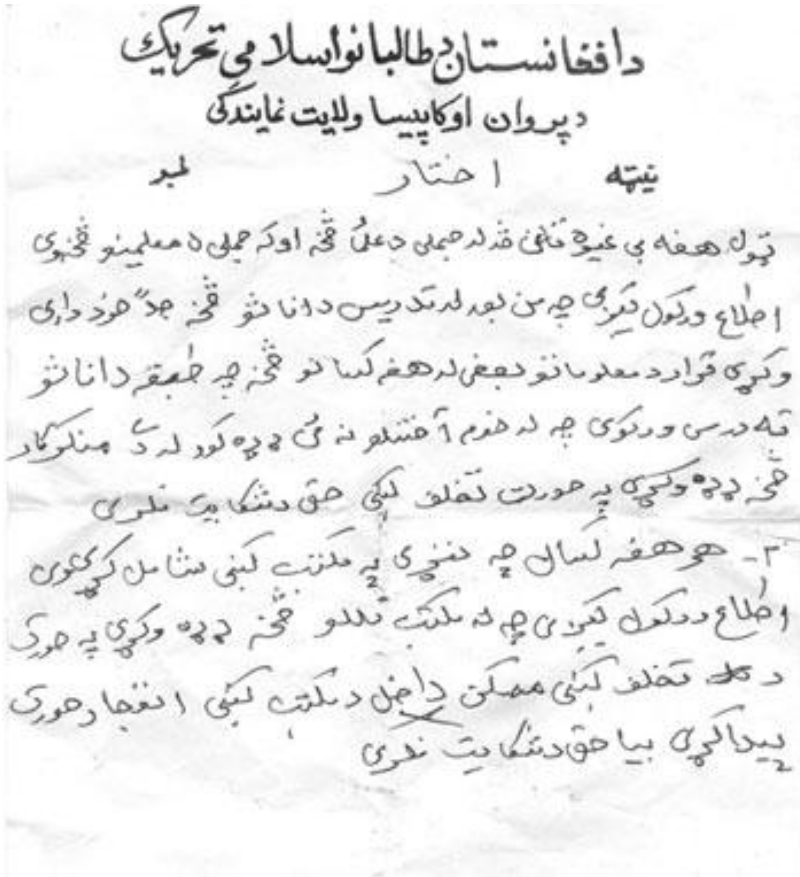 د افغانستان د طالبانو اسلامي تحریک
د پروان او کاپیسا ولایت نمایندګی
نیټه اخطار لمبر
ټول هغه بی غیرته د څخه او که د معلمینو څخه وی
اطلاع ورکول کیږی چه من بعد له تدریس د اناثو څخه جداً خود داری
وکړی قرار د معلوماتو بعضی له هغه کسانو څخه چه طبقه د اناثو
ته درس ورکوی چه له خدای نه ئی ډډه کوی له دی منکر کار
څخه ډډه وکړی په صورت تخلف کښی حق د شکایت نلری
۲- هر هغه کسان چه نجونی په مکتب کښی شامل کړی وی
اطلاع ورکول کیږی چه له مکتب تللو څخه ډډه وکړی په صورت
د تخلف کښی ممکن داخل د مکتب کښی انفجار صورت
پیدا کړی بیا حق د شکایت نلری